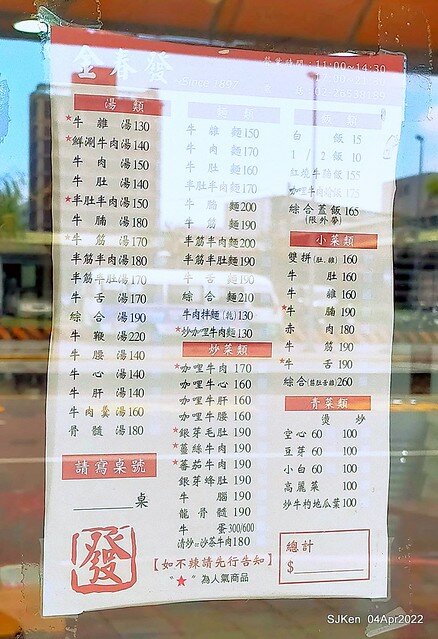 金春發
Since 1897
營業時間:11:00~14:30
湯類
牛雜湯130
★鮮涮牛肉湯140
牛肉湯150
牛肚湯140
★半肚半肉湯150
牛腩湯180
★牛筋湯170
半筋半肉湯180
半筋半肚湯170
牛舌湯170
綜合湯190
牛鞭湯220
牛腰湯140
牛心湯140
牛肝湯140
牛肉羹湯160
骨髓湯180
請寫桌號
桌
發
麵類
牛雜麵150
牛肉麵170
牛肚麵160
半肚半肉麵170
牛腩麵200
牛筋麵190
半筋半肉麵200
半筋半肚麵190
牛舌麵190
綜合麵210
牛肉拌麵(乾)130
★炒咖哩牛肉麵130
炒菜類
★咖哩牛肉170
咖哩牛心160
咖哩牛肝160
咖哩牛腰160
★銀芽毛肚190
★薑絲牛肉190
★蕃茄牛肉190
銀芽蜂肚190
牛腦190
龍骨髓190
牛蛋300/600
清炒or沙茶牛肉180
【如不辣請先行告知】
"★"為人氣商品
飯類
白飯15
1/2飯10
紅燒牛腩飯155
咖哩牛肉燴飯175
綜合蓋飯165
(限外帶)
小菜類
雙拼(肚、雜)160
牛肚160
牛雜160
★牛腩190
赤肉180
牛筋190
★牛舌190
綜合(筋肚舌雜)260
青菜類
燙 炒
空心 60 100
豆芽 60 100
小白 60 100
高麗菜 100
炒牛枸地瓜葉100
總計
$
SJKen 04Apr2022